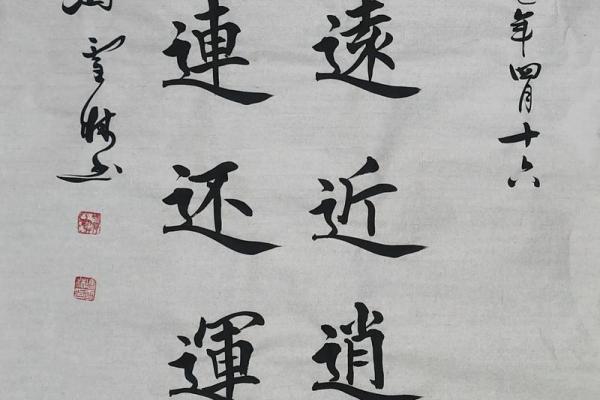 年四月十六
遠近逍
連还運
雪